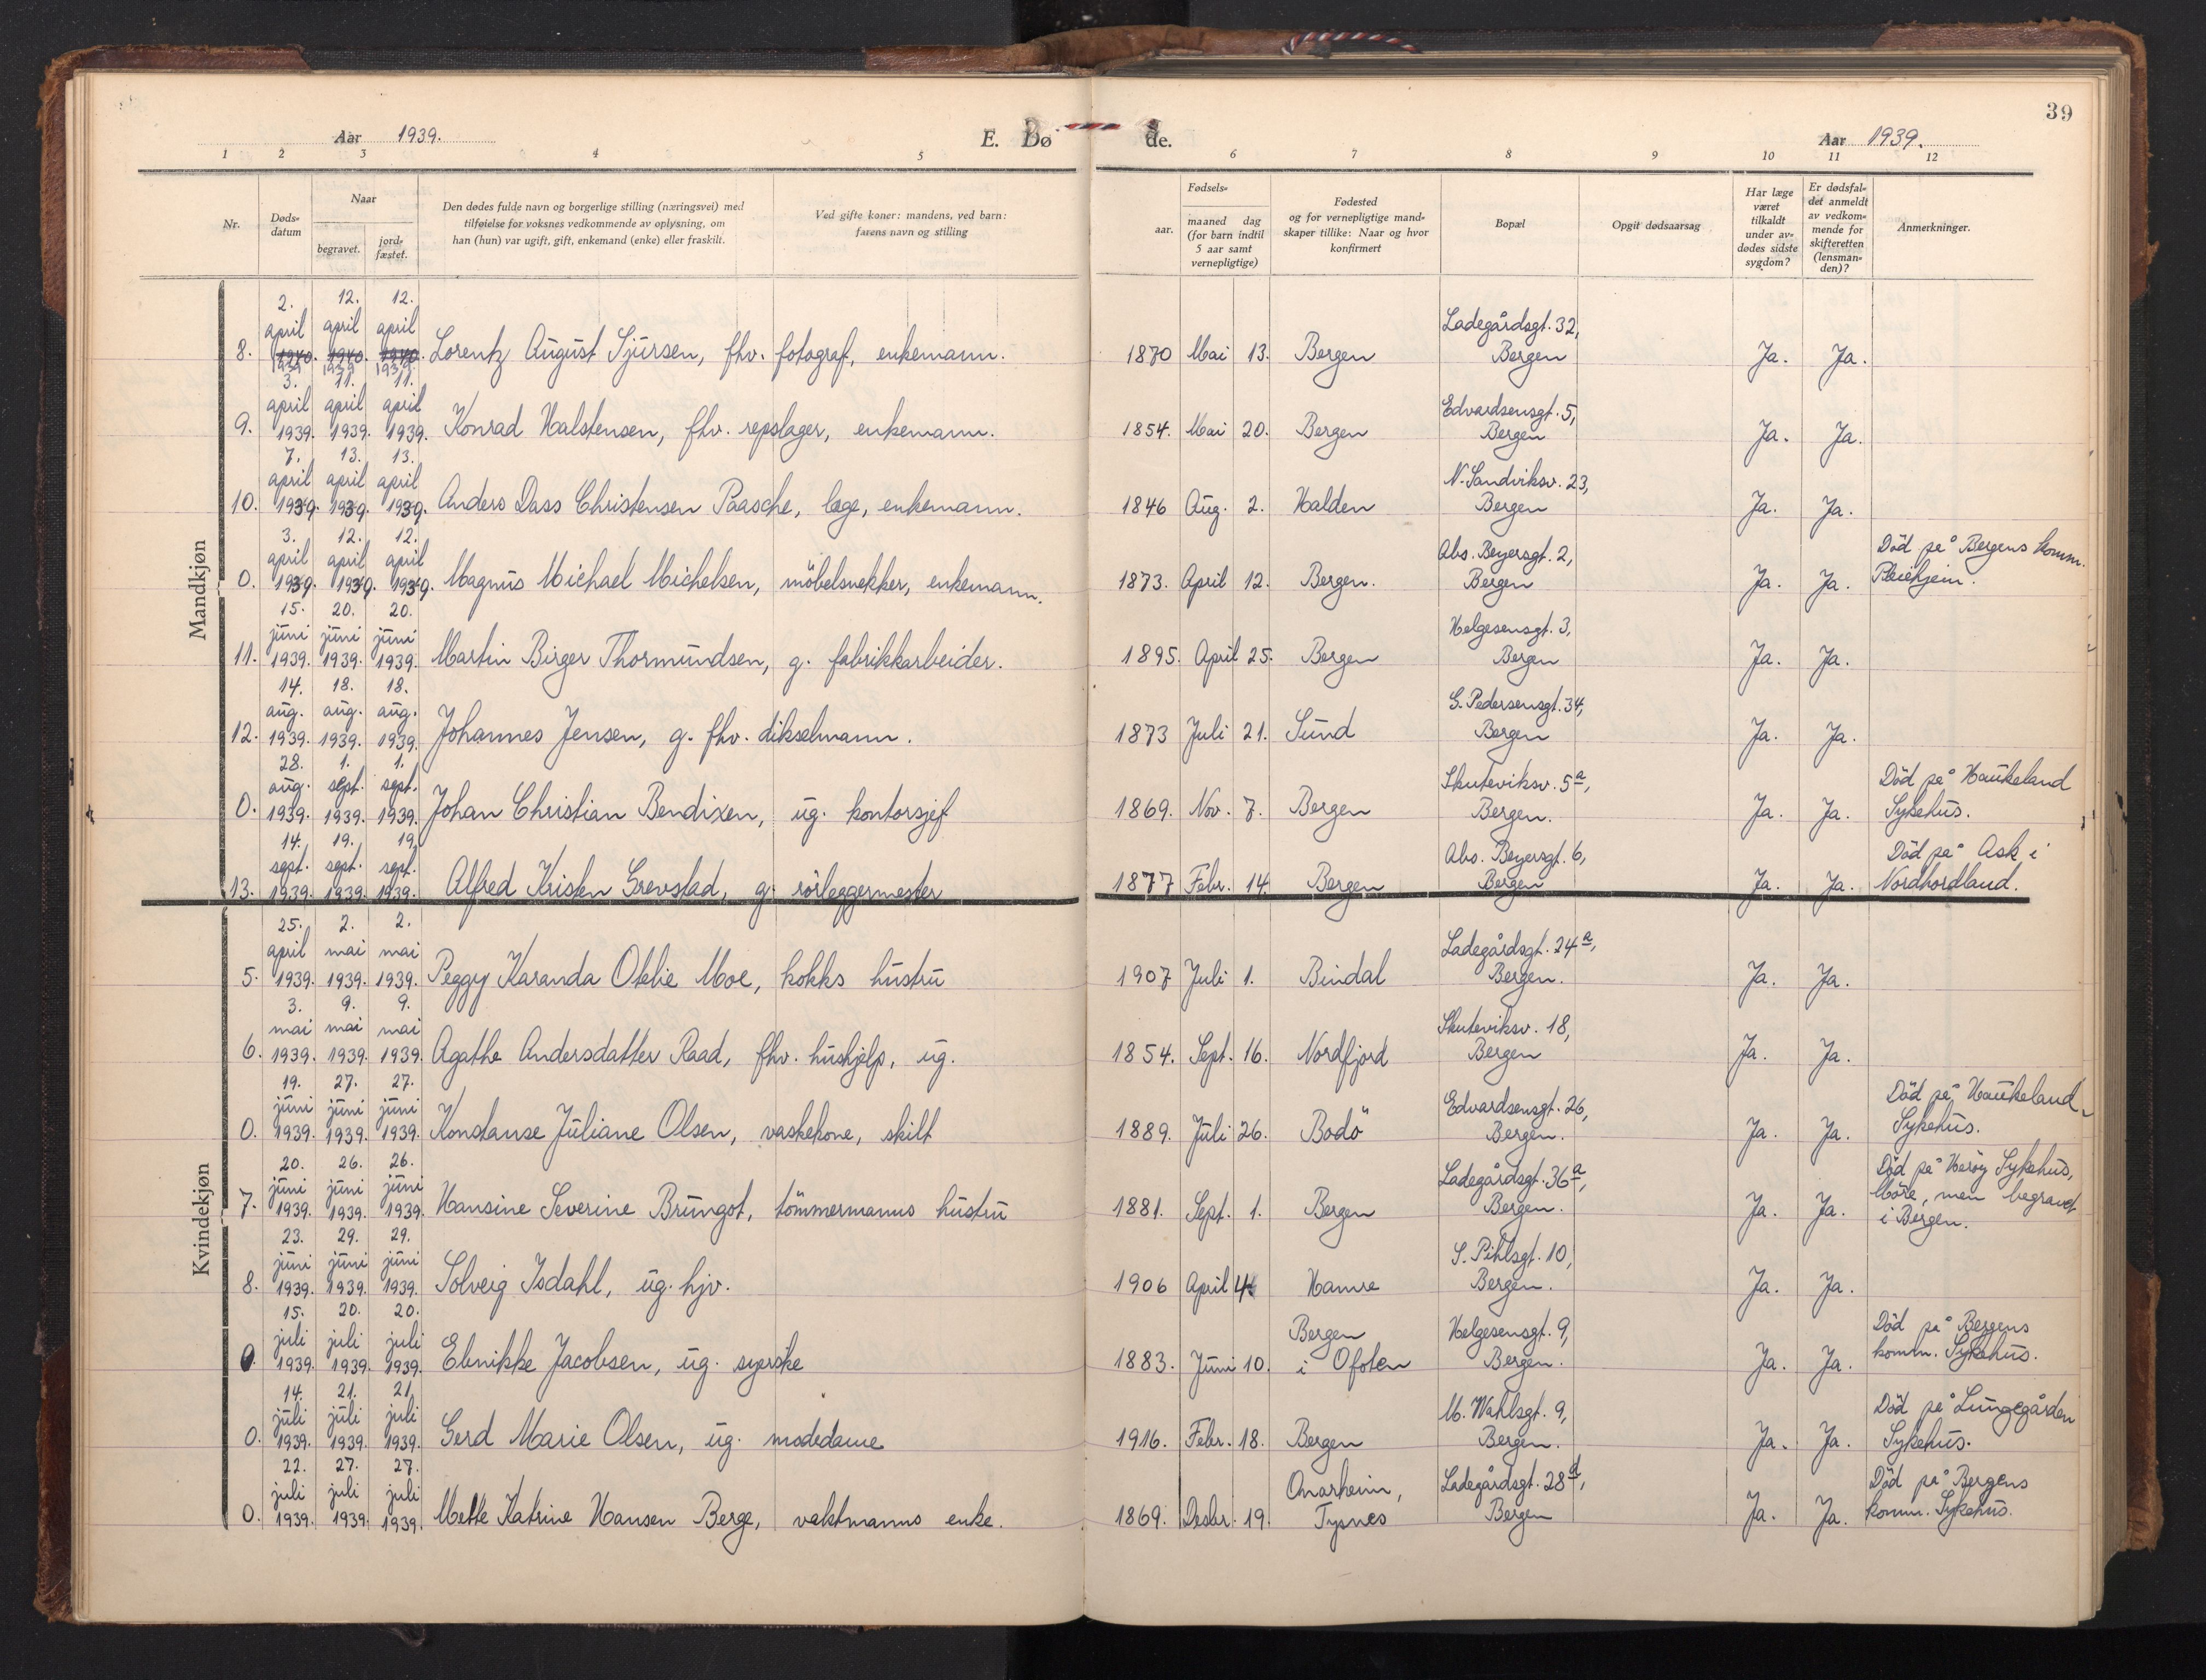 39
Aar 1939. E. Dø de. Aar 1939.
1 2 3 4 5 6 7 8 9 10 11 12
Nr.
Døds-
datum
Naar
begravet.
jord-
fæstet.
Den dødes fulde navn og borgerlige stilling (næringsvei) med
tilføielse for voksnes vedkommende av oplysning, om
han (hun) var ugift, gift, enkemand (enke) eller fraskilt.
Ved gifte koner: mandens, ved barn:
farens navn og stilling
Fødsels-
aar.
maaned dag
(for barn indtil
5 aar samt
vernepligtige)
Fødested
og for vernepligtige mand-
skaper tillike: Naar og hvor
konfirmert
Bopæl
Opgit dødsaarsag
Har læge
været
tilkaldt
under av-
dødes sidste
sygdom?
Er dødsfal-
det anmeldt
av vedkom-
mende for
skifteretten
(lensman-
den)?
Anmerkninger.
Mandkjøn
2. 12. 12.
april april april Ladegårdsgt. 32,
8. 1940. 1940. 1940. Lorentz August Sjursen, fhv. fotograf, enkemann. 1870 Mai 13. Bergen Bergen Ja. Ja.
1939 1939 1939
3. 11. 11.
april april april Edvardsensgt. 5,
9. 1939. 1939. 1939. Konrad Halstensen, fhv. repslager, enkemann. 1854. Mai 20. Bergen Bergen Ja. Ja.
7. 13. 13.
april april april N. Sandviksv. 23,
10. 1939. 1939. 1939. Anders Dass Christensen Paasche, læge, enkemann. 1846 Aug. 2. Halden Bergen Ja. Ja.
3. 12. 12.
april april april Abs. Beyersgt. 2, Död på Bergens komm.
0. 1939. 1939. 1939. Magnus Michael Michelsen, möbelsnekker, enkemann. 1873. April 12. Bergen. Bergen Ja. Ja. Pleiehjem.
15. 20. 20.
juni juni juni Helgesensgt. 3,
11. 1939. 1939. 1939. Martin Birger Thormundsen, g. fabrikkarbeider. 1895. April 25. Bergen Bergen Ja. Ja.
14. 18. 18.
aug. aug. aug. G. Pedersensgt. 34,
12. 1939. 1939. 1939. Johannes Jensen, g. fhv. dikselmann. 1873 Juli 21. Sund Bergen Ja. Ja.
28. 1. 1.
aug. sept. sept. Skuteviksv. 5a, Död på Haukeland
0. 1939. 1939. 1939. Johan Christian Bendixen, ug. kontorsjef 1869. Nov. 7. Bergen Bergen. Ja. Ja. Sykehus.
14. 19. 19.
sept. sept. sept. Abs. Beyersgt. 6, Död på Ask i
13. 1939. 1939. 1939. Alfred Kristen Grevstad, g. rörleggermester 1877 Febr. 14 Bergen Bergen Ja. Ja. Nordhordland.
Kvindekjøn
25. 2. 2.
april mai mai Ladegårdsgt. 24a,
5. 1939. 1939. 1939. Peggy Karanda Otelie Moe, kokks hustru 1907 Juli 1. Bindal Bergen. Ja. Ja.
3. 9. 9.
mai mai mai Skuteviksv. 18,
6. 1939. 1939. 1939. Agathe Andersdatter Raad, fhv. hushjelp, ug. 1854. Sept. 16. Nordfjord Bergen Ja. Ja.
19. 27. 27.
juni juni juni Edvardsensgt. 26, Död på Haukeland
0. 1939. 1939. 1939. Konstanse Juliane Olsen, vaskekone, skilt 1889. Juli 26. Bodö Bergen. Ja. Ja. Sykehus.
20. 26. 26.
juni juni juni Ladegårdsgt. 36a, Död på Heröy Sykehus,
7. 1939. 1939. 1939. Hansine Severine Brungot, tömmermanns hustru 1881. Sept. 1. Bergen Bergen. Ja. Ja. Möre, men begravet
i Bergen.
23. 29. 29.
juni juni juni S. Pihlsgt. 10,
8. 1939. 1939. 1939. Solveig Isdahl, ug. hjv. 1906 April 4 Hamre Bergen. Ja. Ja.
15. 20. 20.
juli juli juli Bergen Helgesensgt. 9, Död på Bergens
0. 1939. 1939. 1939. Ebnikke Jacobsen, ug. syerske 1883. Juni 10. i Ofoten Bergen. Ja. Ja. komm. Sykehus.
14. 21. 21.
juli juli juli M. Wahlsgt. 9, Död på Lungegården
0. 1939. 1939. 1939. Gerd Marie Olsen, ug. modedame 1916. Febr. 18. Bergen Bergen. Ja. Ja. Sykehus.
22. 27. 27.
juli juli juli Onarheim, Ladegårdsgt. 28d, Död på Bergens
0. 1939. 1939. 1939. Mette Katrine Hansen Berge, vaktmanns enke. 1869. Desbr. 19. Tysnes Bergen Ja. Ja. komm. Sykehus.